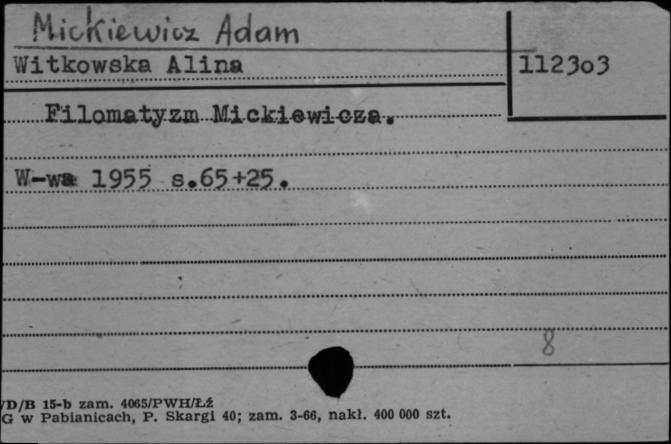 Mickiewicz Adam
Witkowska Alina
112303
Filomatyzm Mickiewicza.
W-wa 1955 s.65+25.
8
/D/B 15-b zam. 4065/PWH/Łź
G w Pabianicach, P. Skargi 40; zam. 3-66, nakł. 400 000 szt.